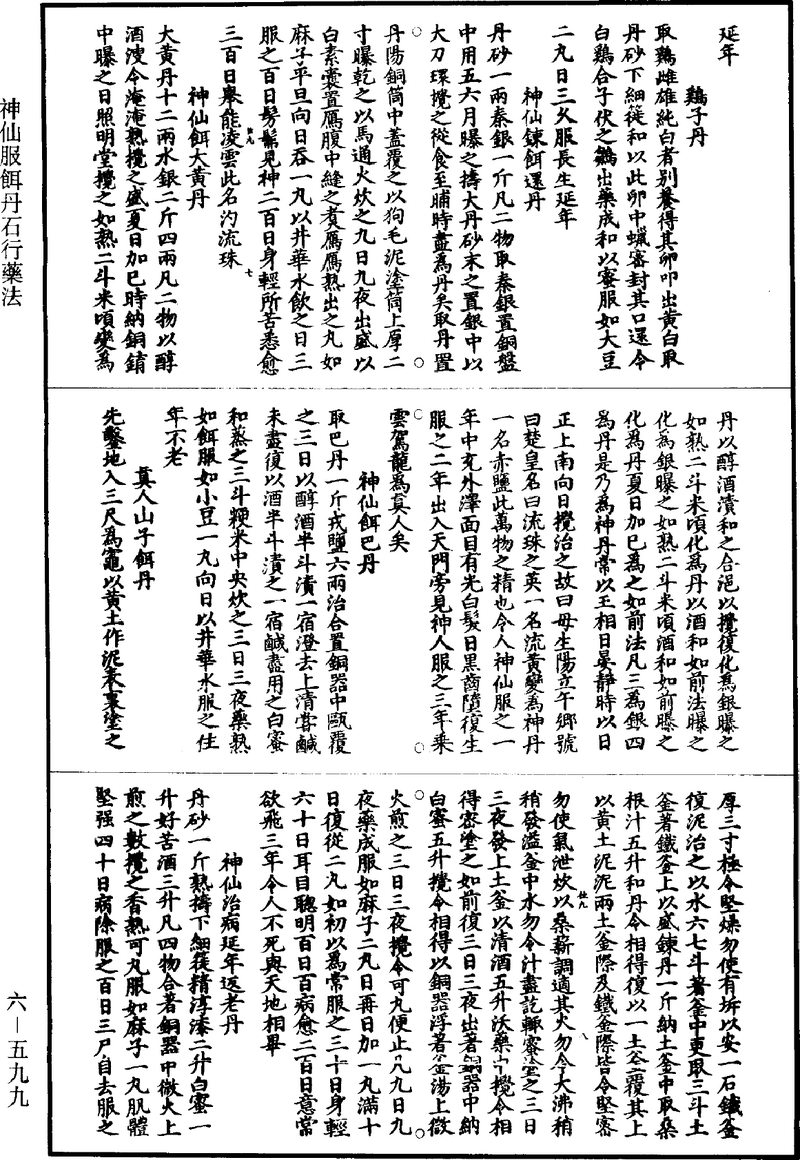 延年
鷄子丹
取鷄雌雄純白者别養得其卵叩出黄白取
丹砂下細簁和以此卵中蠟密封其口還令
白鷄合子伏之鶵出藥成和以蜜服如大豆
二丸日三久服長生延年
神仙鍊餌還丹
丹砂一兩秦銀一斤凡二物取秦銀置銅盤
中用五六月曝之擣大丹砂末之置銀中以
大刀環攪之從食至晡時盡爲丹矣取丹置
丹陽銅筒中蓋覆之以狗毛泥塗筒上厚二
寸曝乾之以馬通火炊之九日九夜出盛以
白素囊置鴈腹中縫之煮鴈鴈熟出之丸如
麻子平旦向日吞一丸以井華水飲之日三
服之百日髣髴見神二百日身輕所苦悉愈
三百日舉能凌雲此名汋流珠
神仙餌大黄丹
大黄丹十二兩水銀二斤四兩凡二物以醇
酒溲令淹淹熟攪之盛夏日加巳時納銅錥
中曝之日照明堂攪之如熟二斗米頃變爲
丹以醇酒漬和之合浥以攪復化爲銀曝之
如熟二斗米頃化爲丹以酒和如前法曝之
化爲銀曝之如熟二斗米頃酒和如前曝之
化爲丹夏日加巳爲之如前法凡三爲銀四
爲丹是乃爲神丹常以王相日晏静時以日
正上南向日攪治之故曰母生陽立午鄉號
曰楚皇名曰流珠之英一名流黄變爲神丹
一名赤鹽此萬物之精也令人神仙服之一
年中充外澤面目有光白髮日黑齒隨復生
服之二年出入天門旁見神人服之三年乘
雲駕龍爲真人矣
神仙餌巴丹
取巴丹一斤戎鹽六兩治合置銅器中甌覆
之三日以醇酒半斗漬一宿澄去上清嘗鹹
未盡復以酒半斗漬之一宿鹹盡用之白蜜
和蒸之三斗粳米中央炊之三日三夜藥熟
如餌服如小豆一丸向日以井華水服之住
年不老
真人山子餌丹
先鑿地入三尺爲竈以黄土作泥來裹塗之
厚三寸極令堅燥勿使有坼以安一石鐵釜
復泥治之以水六七斗著釜中更取三斗土
釜著鐵釜上以盛鍊丹一斤納土釜中取桑
根汁五升和丹令相得復以一土釜覆其上
以黄土泥泥兩土釜際及鐵釜際皆令堅密
勿使氣泄炊以桑薪調適其火勿令大沸稍
稍發溢釜中水勿令汁盡訖輒蜜塗之三日
三夜發上土釜以清酒五升沃藥中攪令相
得密塗之如前復三日三夜出著銅器中納
白蜜五升攪令相得以銅器浮著釜湯上微
火煎之三日三夜攪令可丸便止凡九日九
夜藥成服如麻子二丸日再日加一丸滿十
日復從二丸如初以爲常服之三十日身輕
六十日耳目聰明百日百病愈二百日意常
欲飛三年令人不死與天地相畢
神仙治病延年返老丹
丹砂一斤熟擣下細簁精淳漆二升白蜜一
升好苦酒三升凡四物合著銅器中微火上
煎之數攪之香熟可丸服如麻子一丸肌體
堅强四十日病除服之百日三尸自去服之
神仙服餌丹石行藥法
六—五九九